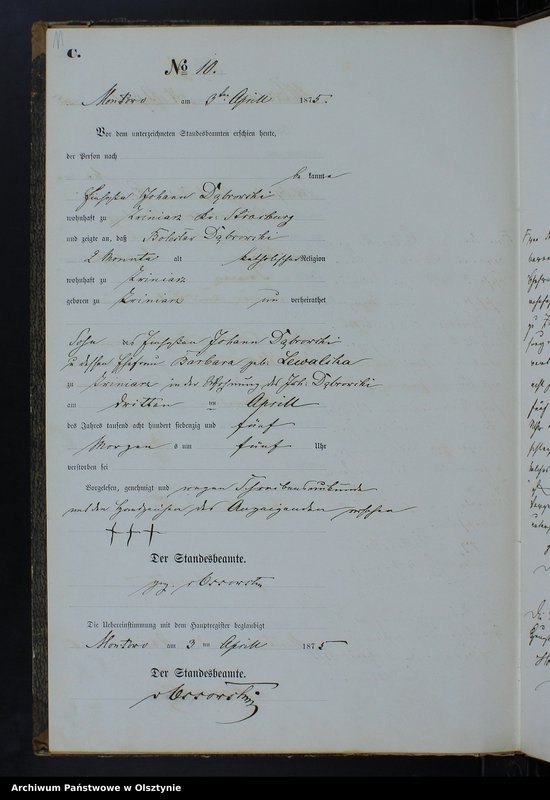 C.
№ 10.
Montowo am 3ten Aprill 1875.
Vor dem unterzeichneten Standesbeamten erschien heute,
der Person nach
be kannte
Johann Dąbrowski
wohnhaft zu Kr: Strasburg
und zeigte an, daß Boleslav Dąbrowski
2 Monate alt katholischer Religion
wohnhaft zu
geboren zu nie verheirathet
Sohn des Johann Dąbrowski
u dessen Ehefrau Barbara geb: Lewalska
zu in der Wohnung des Joh: Dąbrowski
am dritten ten Aprill
des Jahres tausend acht hundert siebenzig und fünf
Morgen s um fünf Uhr
verstorben sei
Vorgelesen, genehmigt und wegen Schreibensunkunde
mit den Handzeichen des Anzeigenden versehen
† † †
Der Standesbeamte.
gez.
Die Uebereinstimmung mit dem Hauptregister beglaubigt
Montowo am 3 ten Aprill 1875
Der Standesbeamte.
Archiwum Państwowe w Olsztynie